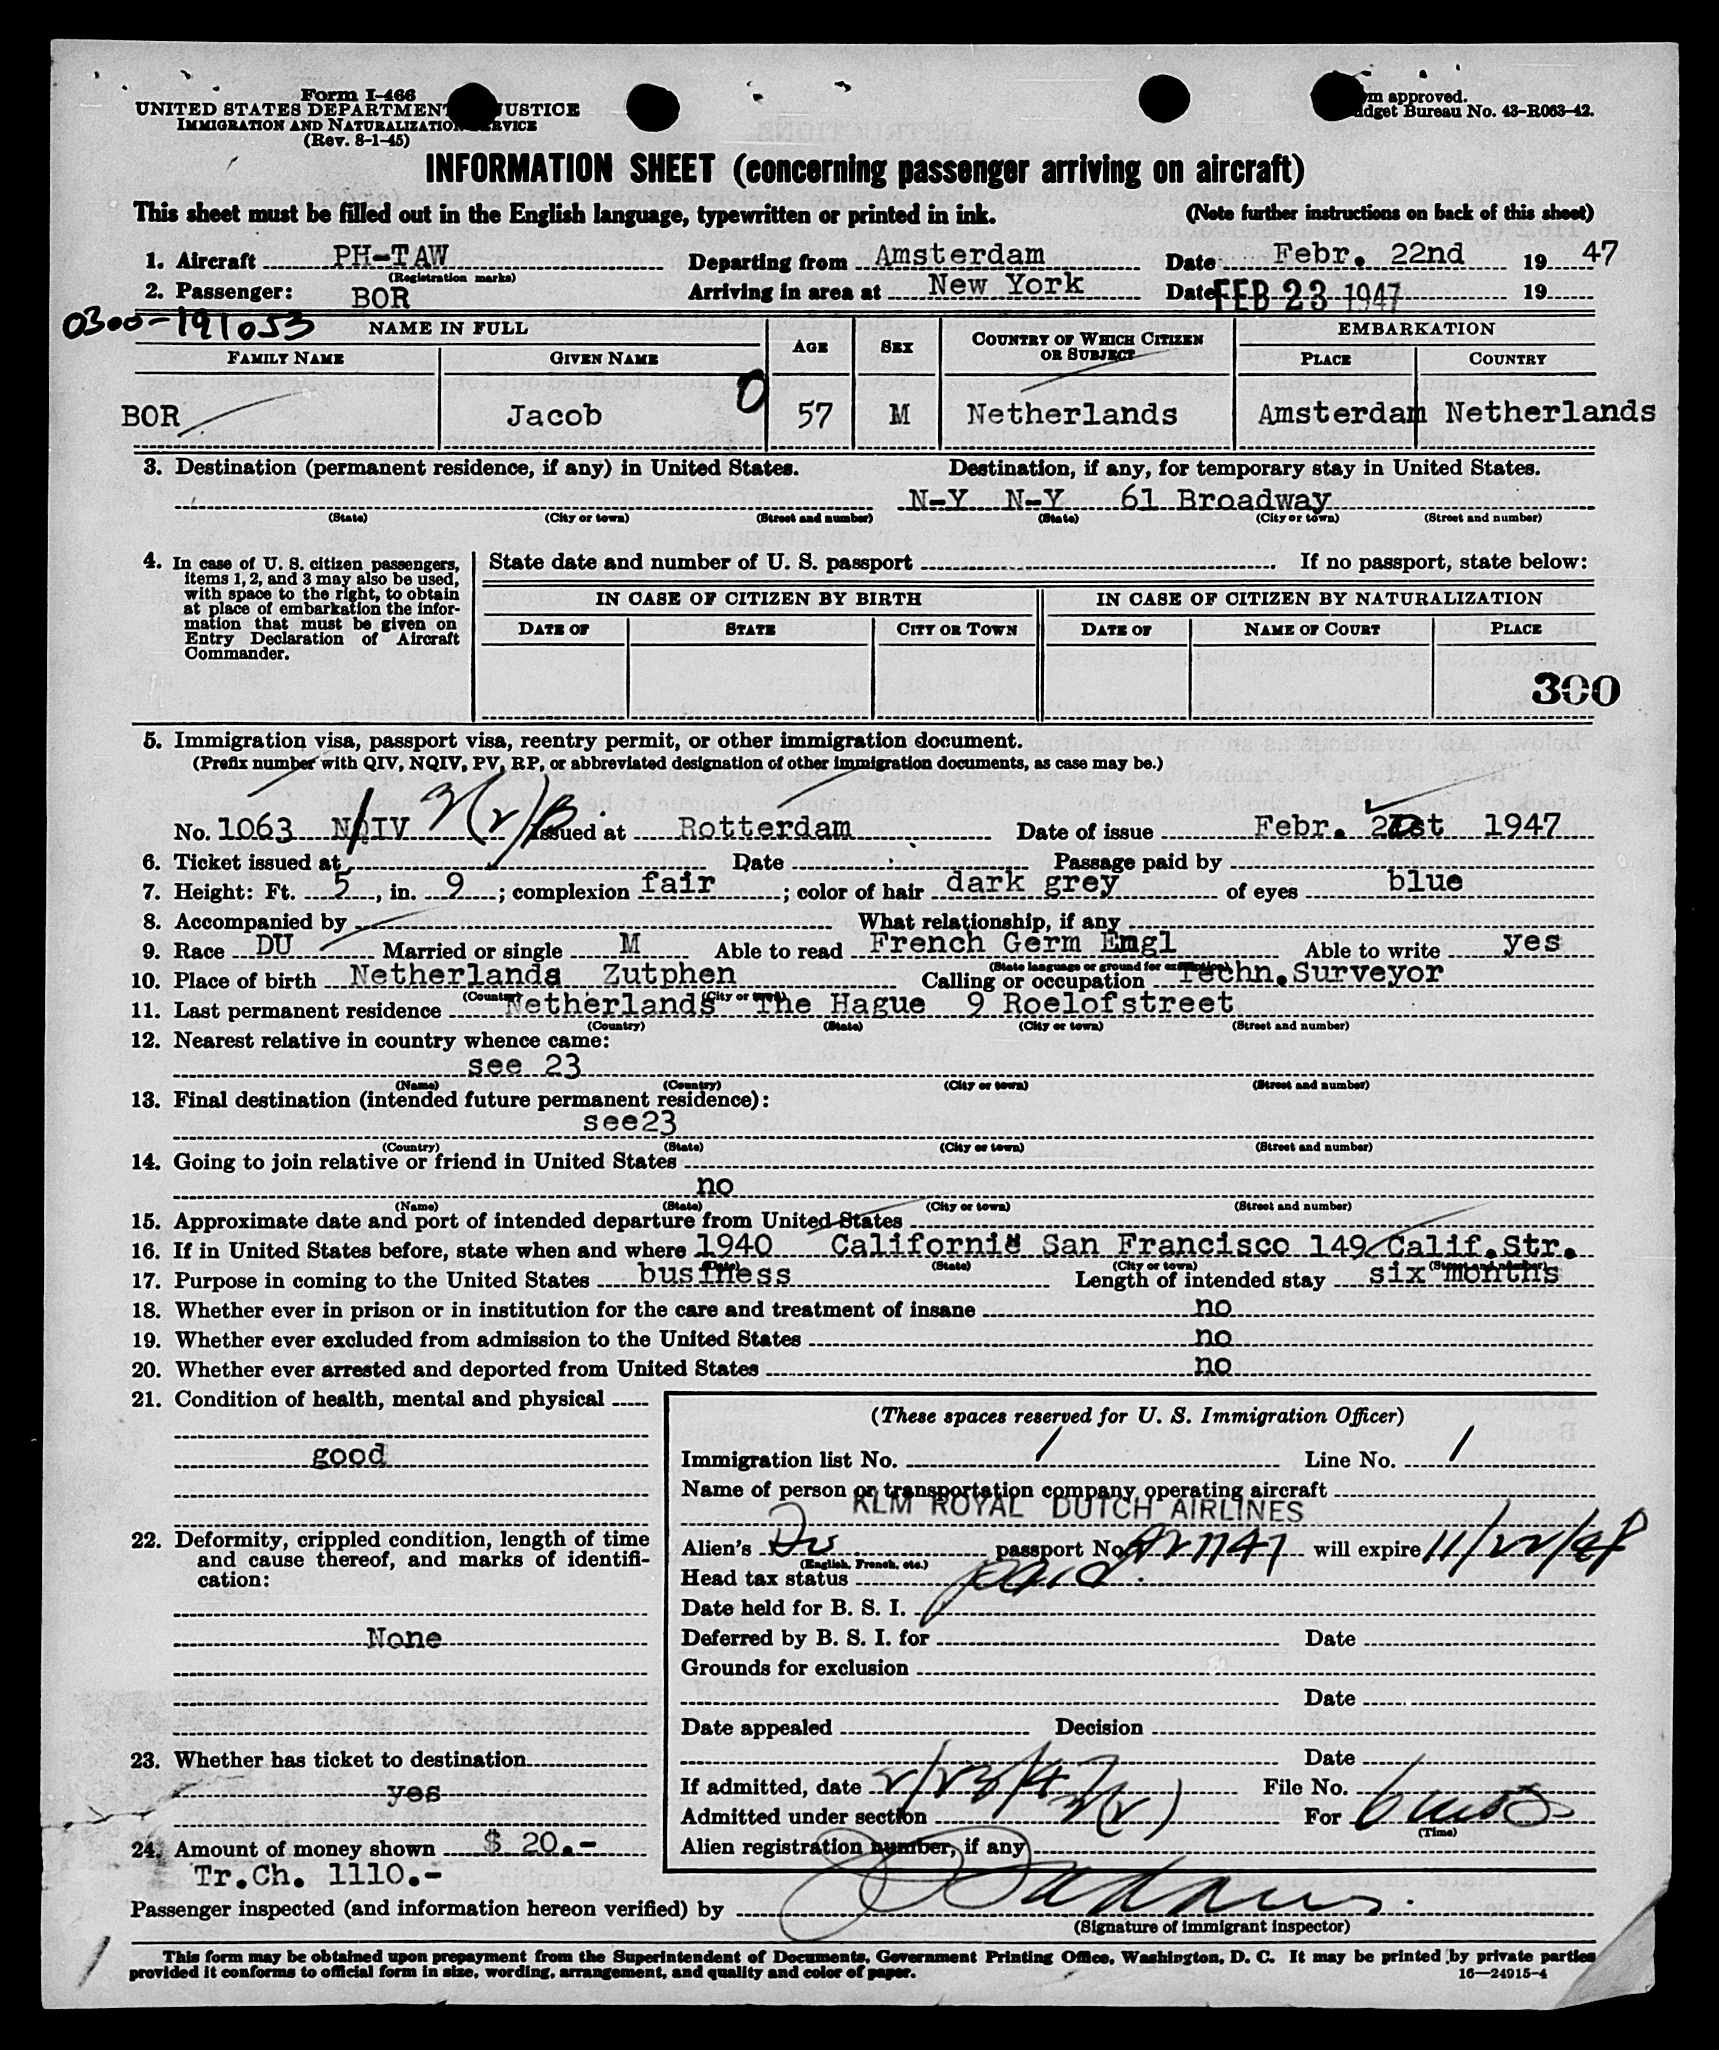 Form I-466
UNITED STATES DEPARTMENT JUSTICE
IMMIGRATION AND NATURALIZATION SERVICE
(Rev. 8-1-45)
approved.
Budget Bureau No. 43-R063-42.
INFORMATION SHEET (concerning passenger arriving on aircraft)
This sheet must be filled out in the English language, typewritten or printed in ink. (Note further instructions on back of this sheet)
1. Aircraft PH-TAW Departing from Amsterdam Date Febr. 22nd 19 47
(Registration marks)
2. Passenger: BOR Arriving in area at New York Date FEB 23 1947 19
0300-191053
NAME IN FULL AGE SEX COUNTRY OF WHICH CITIZEN OR SUBJECT EMBARKATION
FAMILY NAME GIVEN NAME PLACE COUNTRY
BOR Jacob 0 57 M Netherlands Amsterdam Netherlands
3. Destination (permanent residence, if any) in United States. Destination, if any, for temporary stay in United States.
N-Y N-Y 61 Broadway
(State) (City or town) (Street and number) (State) (City or town) (Street and number)
4. In case of U. S. citizen passengers, items 1, 2, and 3 may also be used, with space to the right, to obtain at place of embarkation the information that must be given on Entry Declaration of Aircraft Commander.
State date and number of U. S. passport If no passport, state below:
IN CASE OF CITIZEN BY BIRTH IN CASE OF CITIZEN BY NATURALIZATION
DATE OF STATE CITY OR TOWN DATE OF NAME OF COURT PLACE
300
5. Immigration visa, passport visa, reentry permit, or other immigration document.
(Prefix number with QIV, NQIV, PV, RP, or abbreviated designation of other immigration documents, as case may be.)
No. 1063 NQIV 3(2)B Issued at Rotterdam Date of issue Febr. 21st 1947
6. Ticket issued at Date Passage paid by
7. Height: Ft. 5, in. 9; complexion fair; color of hair dark grey of eyes blue
8. Accompanied by What relationship, if any
9. Race DU Married or single M Able to read French Germ Engl Able to write yes
(State language or ground for exemption)
10. Place of birth Netherlands Zutphen Calling or occupation Techn.Surveyor
(Country) (City or town)
11. Last permanent residence Netherlands The Hague 9 Roelofstreet
(Country) (State) (City or town) (Street and number)
12. Nearest relative in country whence came:
see 23
(Name) (Country) (City or town) (Street and number)
13. Final destination (intended future permanent residence):
see23
(Country) (State) (City or town) (Street and number)
14. Going to join relative or friend in United States
no
(Name) (State) (City or town) (Street and number)
15. Approximate date and port of intended departure from United States
16. If in United States before, state when and where 1940 California San Francisco 149 Calif.Str.
(Date) (State) (City or town) (Street and number)
17. Purpose in coming to the United States business Length of intended stay six months
18. Whether ever in prison or in institution for the care and treatment of insane no
19. Whether ever excluded from admission to the United States no
20. Whether ever arrested and deported from United States no
21. Condition of health, mental and physical
good
22. Deformity, crippled condition, length of time and cause thereof, and marks of identification:
None
23. Whether has ticket to destination
yes
24. Amount of money shown $ 20.-
Tr.Ch. 1110.-
(These spaces reserved for U. S. Immigration Officer)
Immigration list No. 1 Line No. 1
Name of person or transportation company operating aircraft
KLM ROYAL DUTCH AIRLINES
Alien's Du passport No. will expire 11/22/48
(English, French, etc.)
Head tax status paid.
Date held for B. S. I.
Deferred by B. S. I. for Date
Grounds for exclusion
Date
Date appealed Decision
Date
If admitted, date 2/23/47 File No.
Admitted under section 3(2) For 6 mos
(Time)
Alien registration number, if any
Passenger inspected (and information hereon verified) by
(Signature of immigrant inspector)
This form may be obtained upon prepayment from the Superintendent of Documents, Government Printing Office, Washington, D. C. It may be printed by private parties
provided it conforms to official form in size, wording, arrangement, and quality and color of paper. 16—24915-4